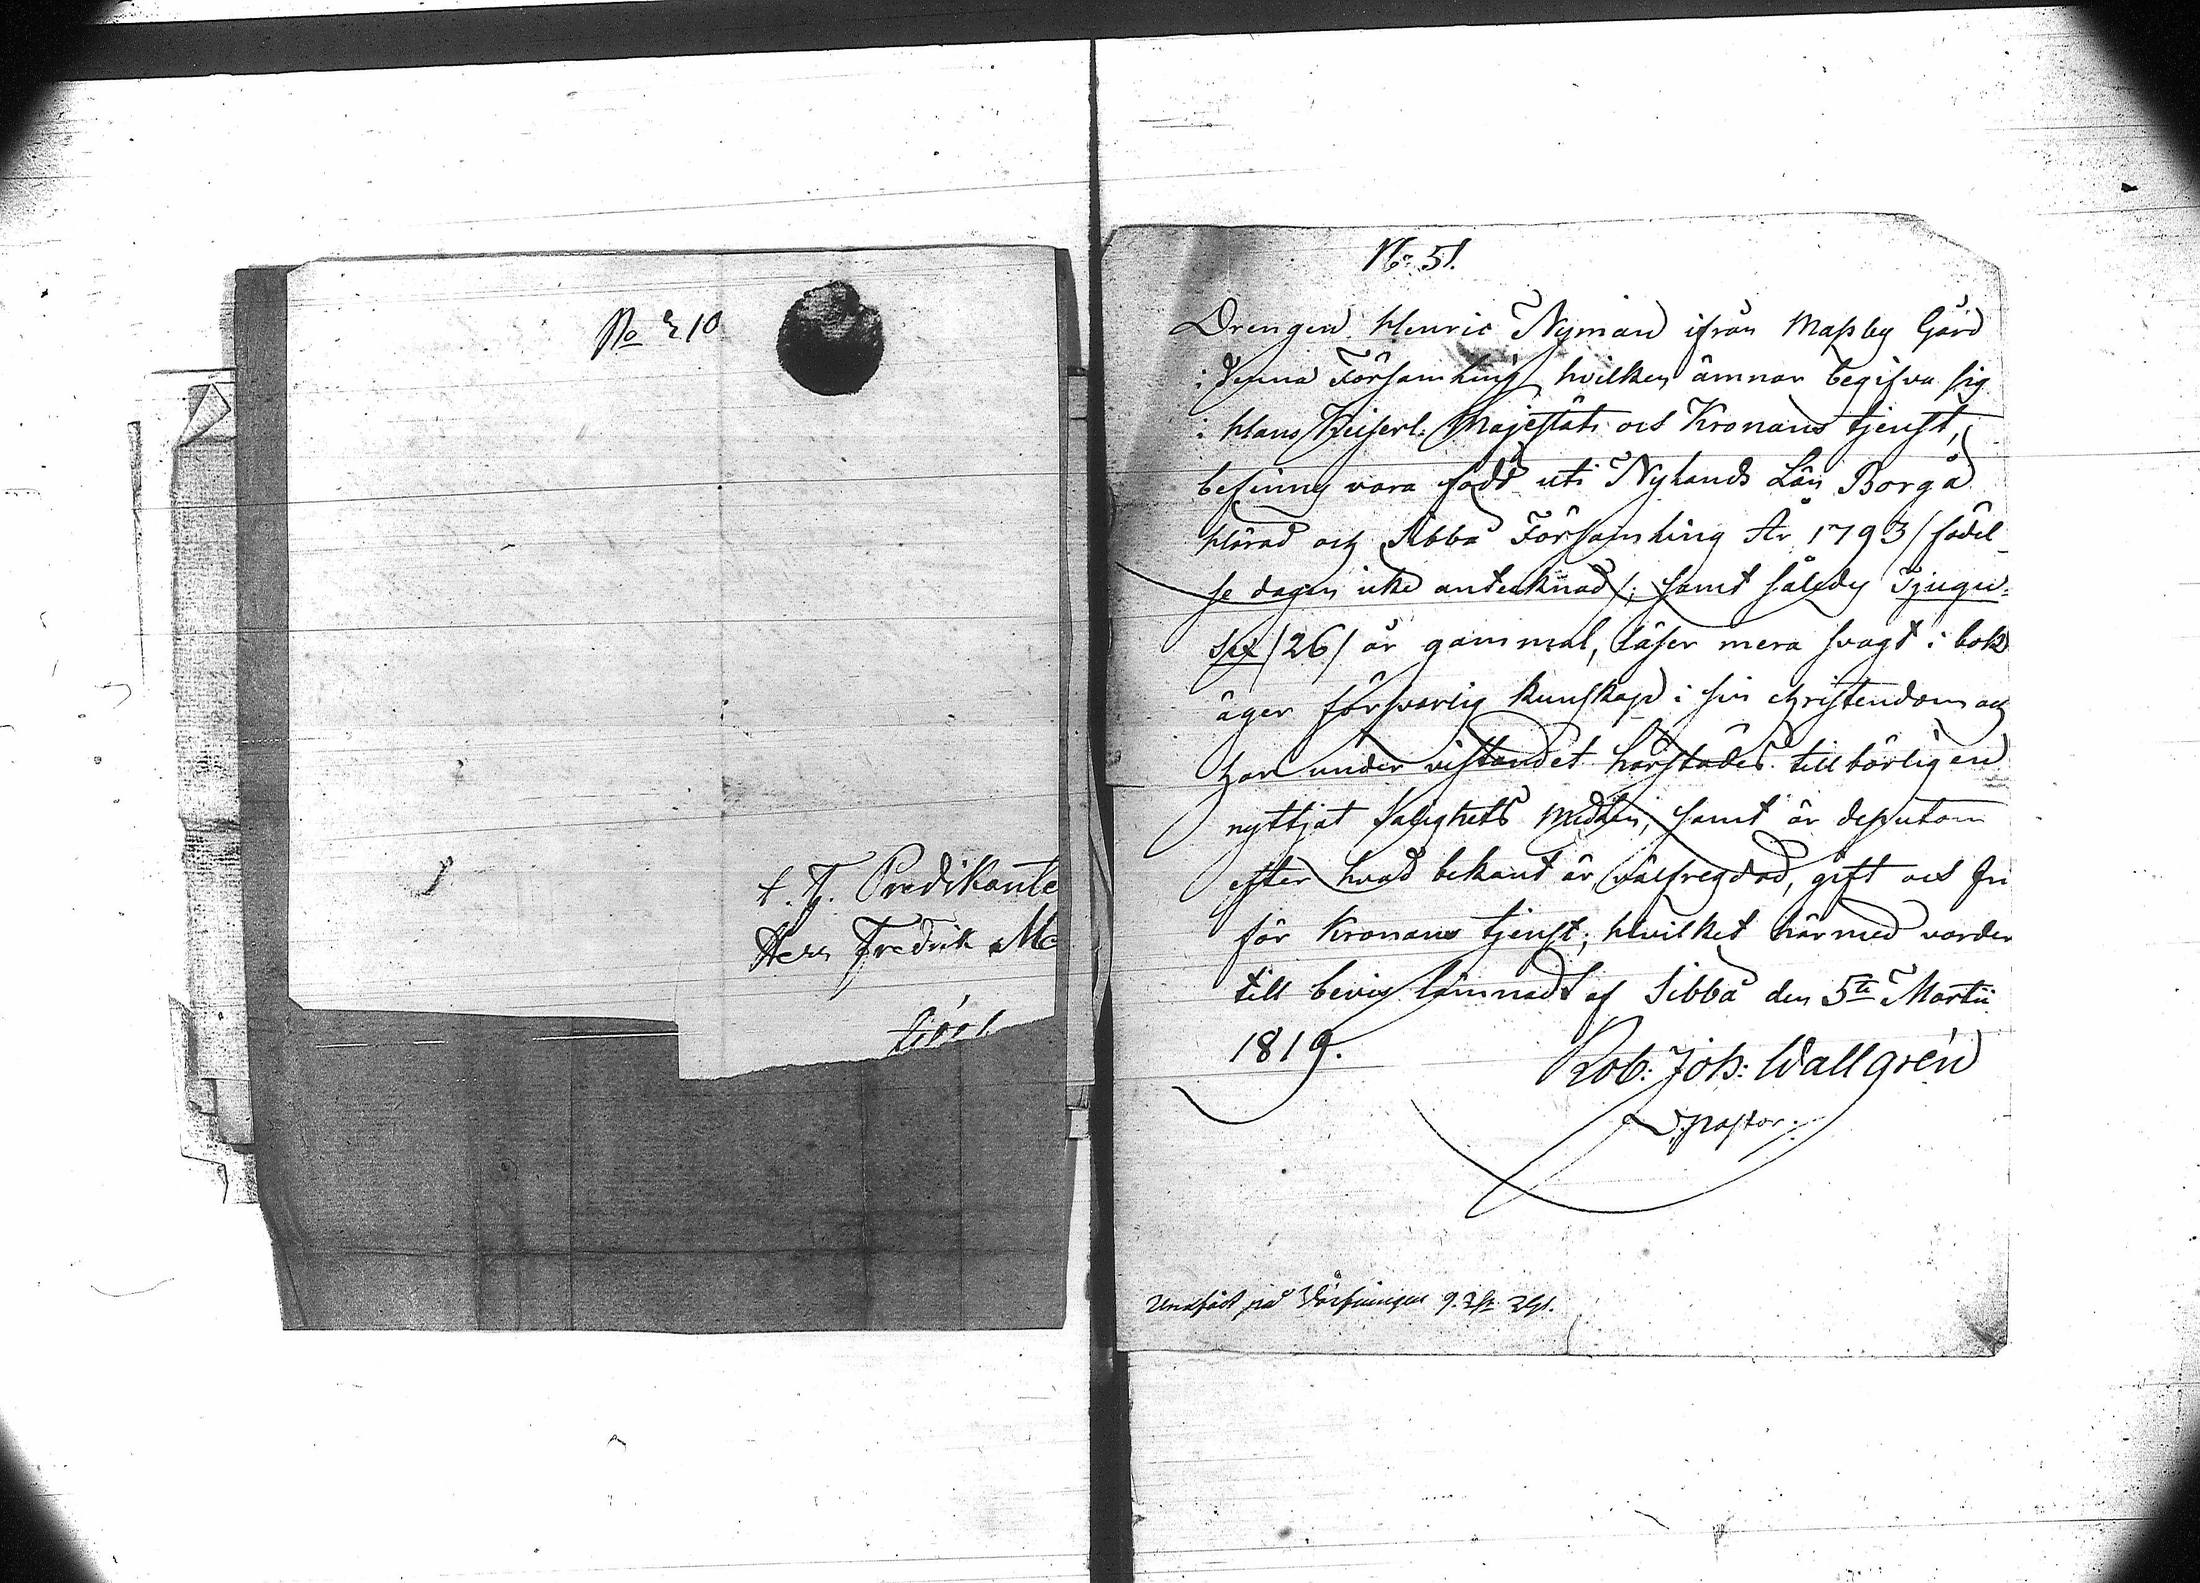 No 210
t. f. Predikante
Herr Fredrik
No 51.
Drengen Henric Nyman ifrån Massby Gård
i denna Församling, hvilken ämnar begifva sig
i Hans Keiserl. Majestäts och Kronans tjenst,
befinnes vara född uti Nylands Län Borgå
Härad och Sibbå Församling År 1793 /: födel-
se dagen icke antecknad :/ samt således Tjugu-
sex /26/ år gammal, läser mera svagt i bok
äger försvarlig kunskap i sin christendom och
har under vistandet härstädes tillbörligen
nyttjat Salighets medlen, samt är dessutom
efter hvad bekant är välfregdad, gift och fri
för Kronans tjenst; Hvilket härmed varder
till bevis lämnadt af Sibbå den 5te Martii
1819.
Rob: Joh: Wallgrén
V. Pastor.
på